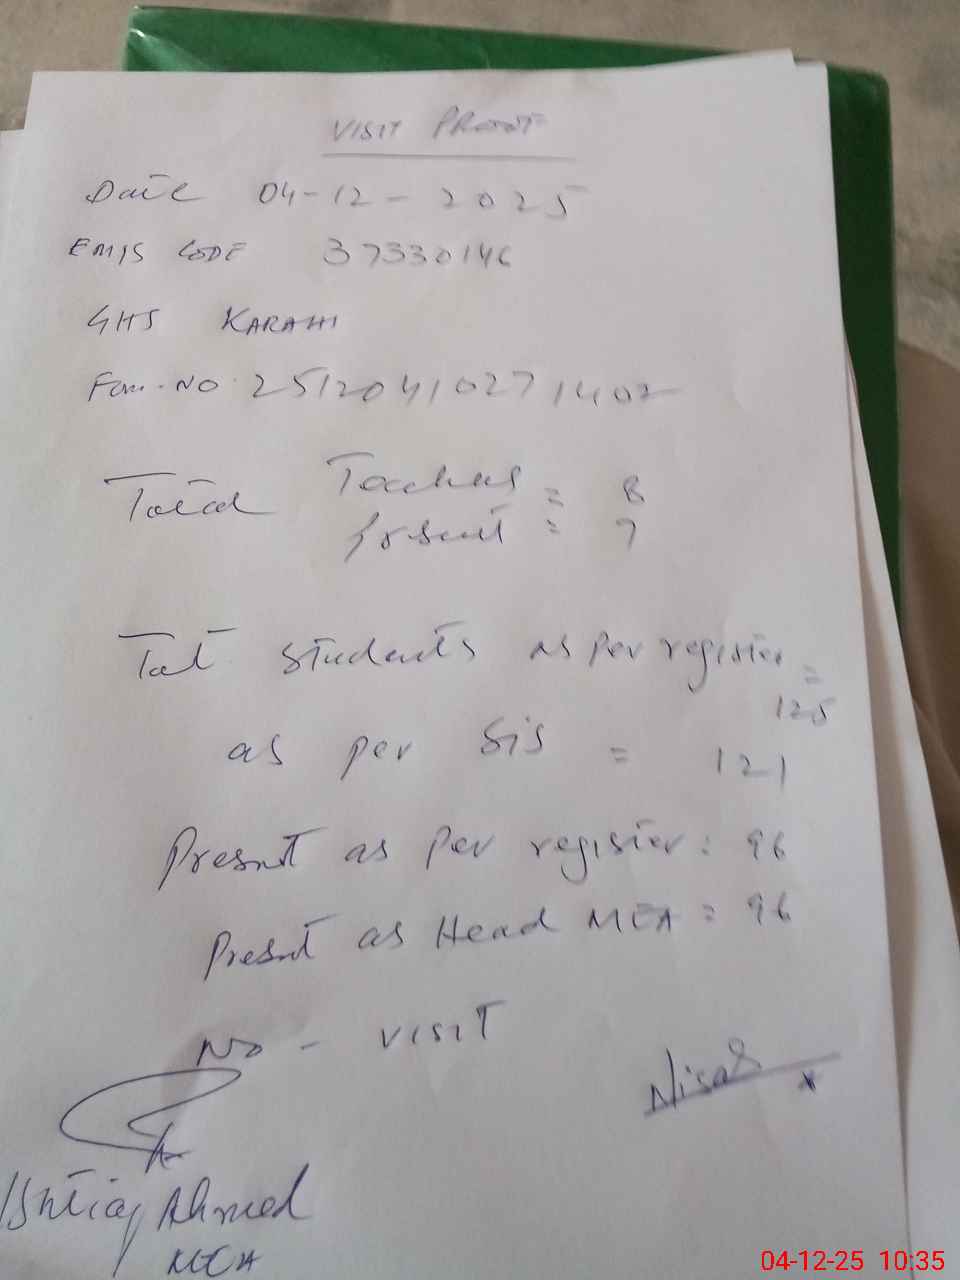 VISIT PROOF
Date 04-12-2025
EMIS CODE 37330146
GHS KARAHI
Form. NO. 25120410271402
Total Teachers = 8
Present = 7
Tot. students as per register =
125
as per SiS = 121
Present as per register = 96
Present as Head MEA = 96
No - VISIT
Nisar
Ishtiaq Ahmed
MEA
04-12-25 10:35